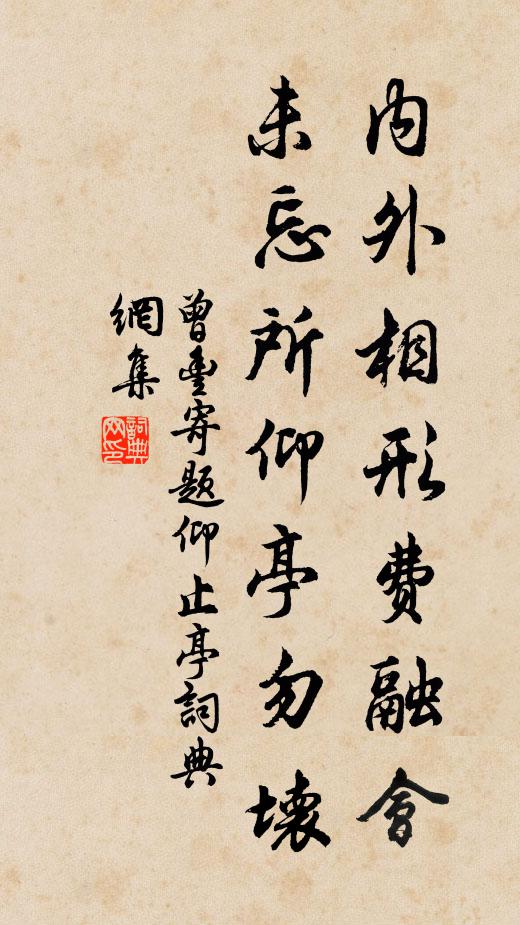 内外相形费融會
未忘所仰亭勿壊
曾豊寄题仰止亭詞典
網集
詞典
网印